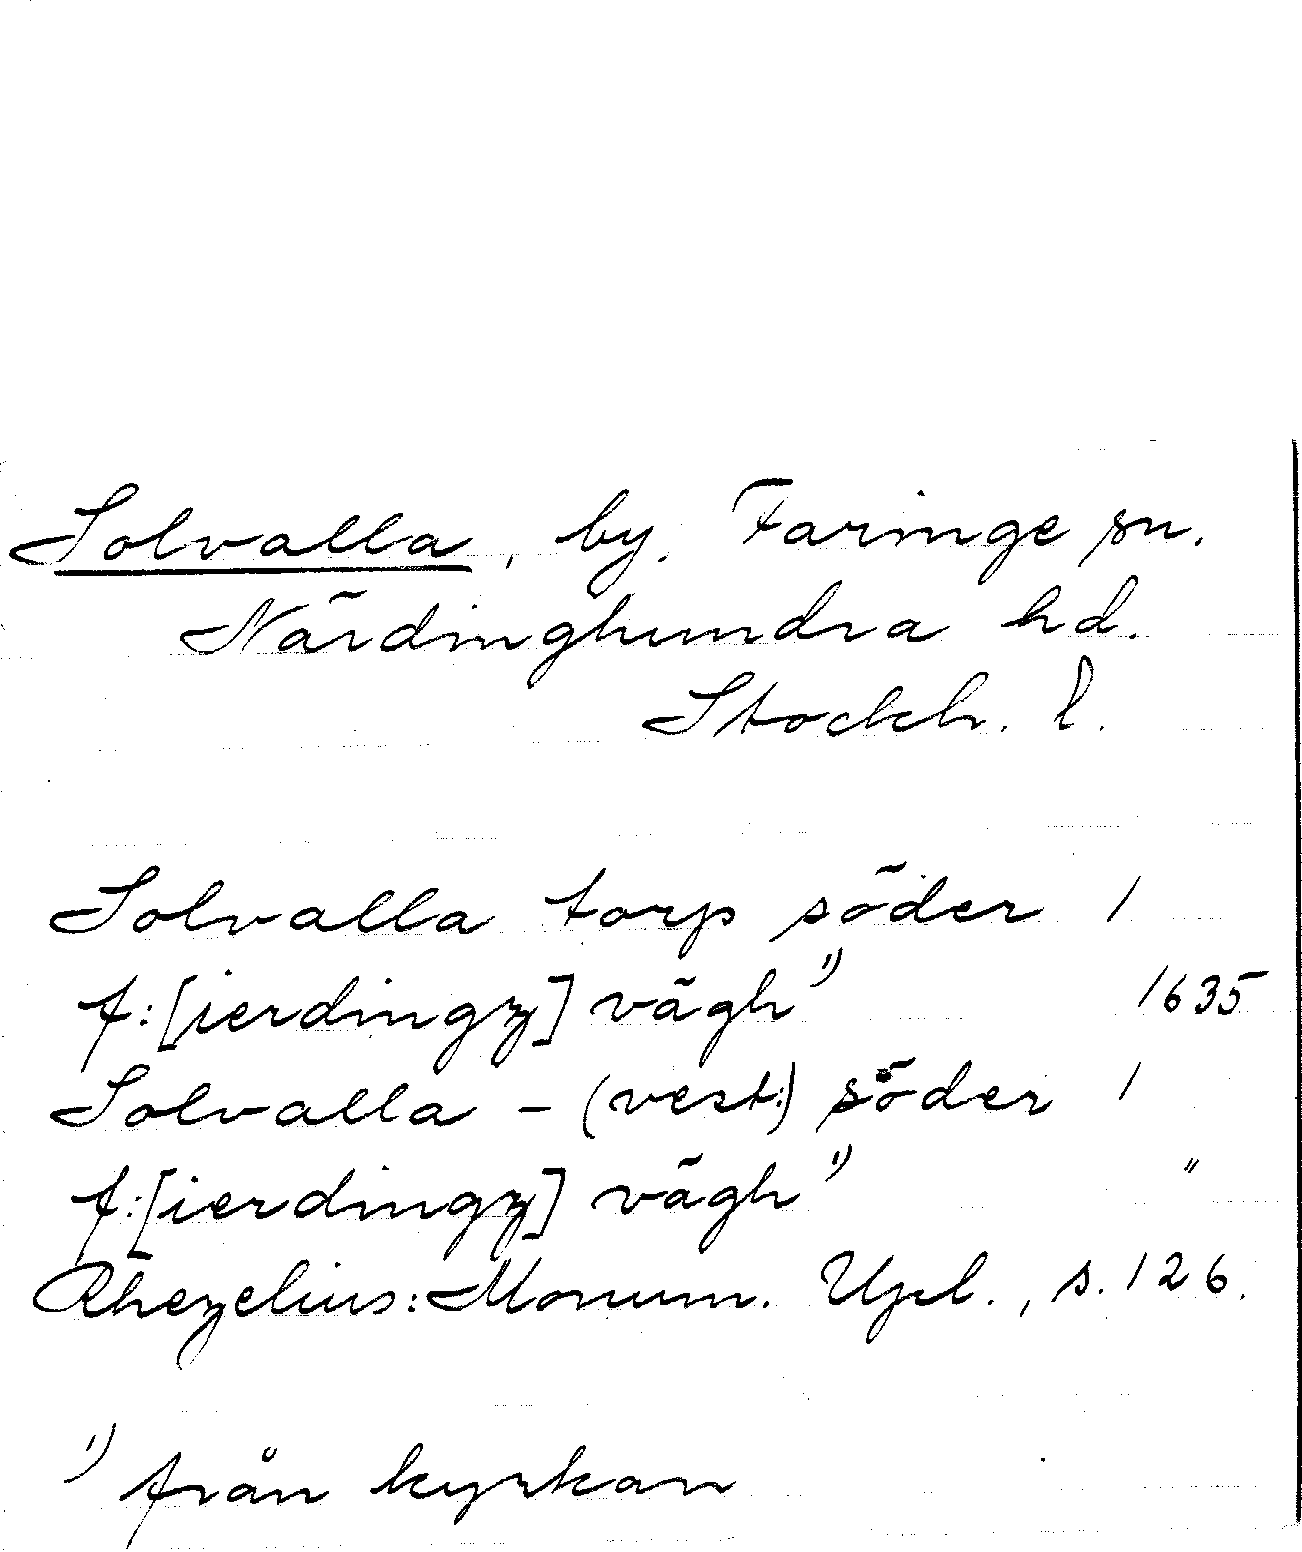 Solvalla, by. Faringe sn.
Närdinghundra hd.
Stockh. l.
Solvalla torp söder 1
f:[ierdingz] vägh 1) 1635
Solvalla – (vest:) söder 1
f:[ierdingz] vägh 1) "
Rhezelius: Monum. Upl., s. 126.
1) från kyrkan